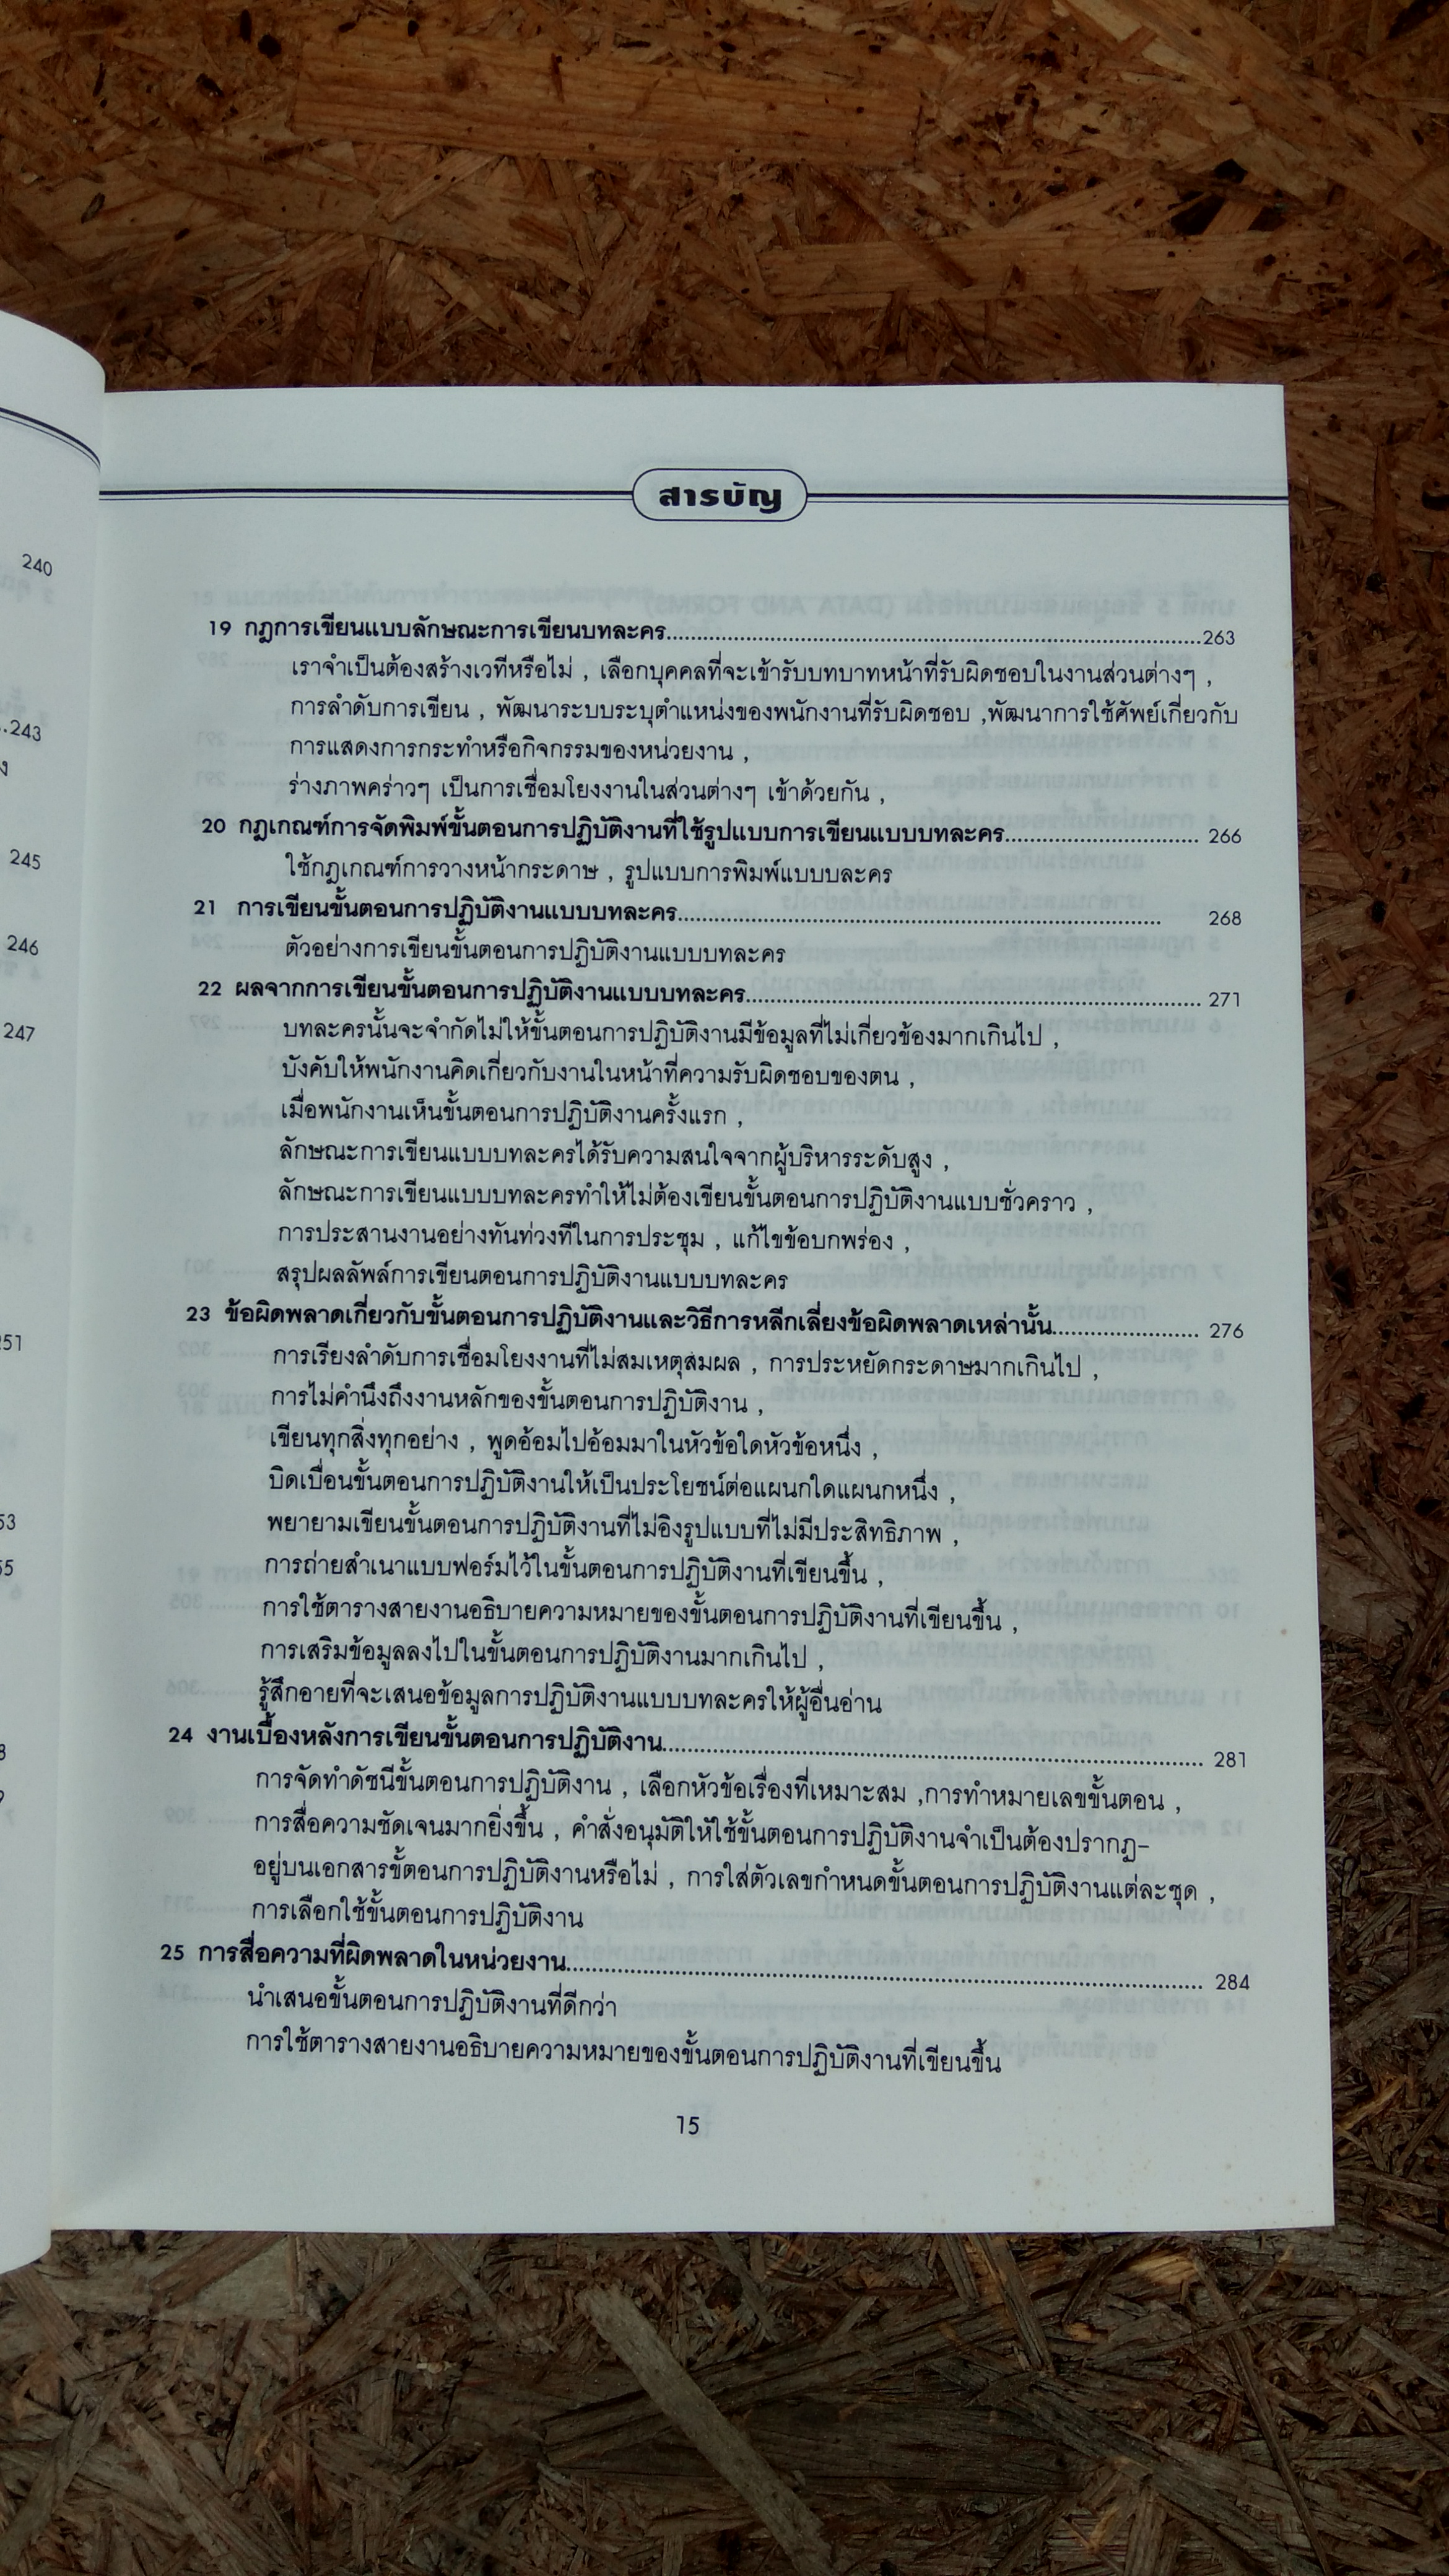 240
243
245
246
247
251
53
55
สารบัญ
19 กฎการเขียนแบบลักษณะการเขียนบทละคร..........263
เราจำเป็นต้องสร้างเวทีหรือไม่ , เลือกบุคคลที่จะเข้ารับบทบาทหน้าที่รับผิดชอบในงานส่วนต่างๆ ,
การลำดับการเขียน , พัฒนาระบบระบุตำแหน่งของพนักงานที่รับผิดชอบ ,พัฒนาการใช้ศัพย์เกี่ยวกับ
การแสดงการกระทำหรือกิจกรรมของหน่วยงาน ,
ร่างภาพคร่าวๆ เป็นการเชื่อมโยงงานในส่วนต่างๆ เข้าด้วยกัน ,
20 กฎเกณฑ์การจัดพิมพ์ขั้นตอนการปฏิบัติงานที่ใช้รูปแบบการเขียนแบบบทละคร.......... 266
ใช้กฎเกณฑ์การวางหน้ากระดาษ , รูปแบบการพิมพ์แบบบละคร
21 การเขียนขั้นตอนการปฏิบัติงานแบบบทละคร.......... 268
ตัวอย่างการเขียนขั้นตอนการปฏิบัติงานแบบบทละคร
22 ผลจากการเขียนขั้นตอนการปฏิบัติงานแบบบทละคร.......... 271
บทละครนั้นจะจำกัดไม่ให้ขั้นตอนการปฏิบัติงานมีข้อมูลที่ไม่เกี่ยวข้องมากเกินไป ,
บังคับให้พนักงานคิดเกี่ยวกับงานในหน้าที่ความรับผิดชอบของตน ,
เมื่อพนักงานเห็นขั้นตอนการปฏิบัติงานครั้งแรก ,
ลักษณะการเขียนแบบบทละครได้รับความสนใจจากผู้บริหารระดับสูง ,
ลักษณะการเขียนแบบบทละครทำให้ไม่ต้องเขียนขั้นตอนการปฏิบัติงานแบบชั่วคราว ,
การประสานงานอย่างทันท่วงทีในการประชุม , แก้ไขข้อบกพร่อง ,
สรุปผลลัพล์การเขียนตอนการปฏิบัติงานแบบบทละคร
23 ข้อผิดพลาดเกี่ยวกับขั้นตอนการปฏิบัติงานและวิธีการหลีกเลี่ยงข้อผิดพลาดเหล่านั้น.......... 276
การเรียงลำดับการเชื่อมโยงงานที่ไม่สมเหตุสมผล , การประหยัดกระดาษมากเกินไป ,
การไม่คำนึงถึงงานหลักของขั้นตอนการปฏิบัติงาน ,
เขียนทุกสิ่งทุกอย่าง , พูดอ้อมไปอ้อมมาในหัวข้อใดหัวข้อหนึ่ง ,
บิดเบื่อนขั้นตอนการปฏิบัติงานให้เป็นประโยชน์ต่อแผนกใดแผนกหนึ่ง ,
พยายามเขียนขั้นตอนการปฏิบัติงานที่ไม่อิงรูปแบบที่ไม่มีประสิทธิภาพ ,
การถ่ายสำเนาแบบฟอร์มไว้ในขั้นตอนการปฏิบัติงานที่เขียนขึ้น ,
การใช้ตารางสายงานอธิบายความหมายของขั้นตอนการปฏิบัติงานที่เขียนขึ้น ,
การเสริมข้อมูลลงไปในขั้นตอนการปฏิบัติงานมากเกินไป ,
รู้สึกอายที่จะเสนอข้อมูลการปฏิบัติงานแบบบทละครให้ผู้อื่นอ่าน
24 งานเบื้องหลังการเขียนขั้นตอนการปฏิบัติงาน.......... 281
การจัดทำดัชนีขั้นตอนการปฏิบัติงาน , เลือกหัวข้อเรื่องที่เหมาะสม ,การทำหมายเลขขั้นตอน ,
การสื่อความชัดเจนมากยิ่งขึ้น , คำสั่งอนุมัติให้ใช้ขั้นตอนการปฏิบัติงานจำเป็นต้องปรากฏ-
อยู่บนเอกสารขั้ตอนการปฏิบัติงานหรือไม่ , การใส่ตัวเลขกำหนดขั้นตอนการปฏิบัติงานแต่ละชุด ,
การเลือกใช้ขั้นตอนการปฏิบัติงาน
25 การสื่อความที่ผิดพลาดในหน่วยงาน.......... 284
นำเสนอขั้นตอนการปฏิบัติงานที่ดีกว่า
การใช้ตารางสายงานอธิบายความหมายของขั้นตอนการปฏิบัติงานที่เขียนขึ้น
15